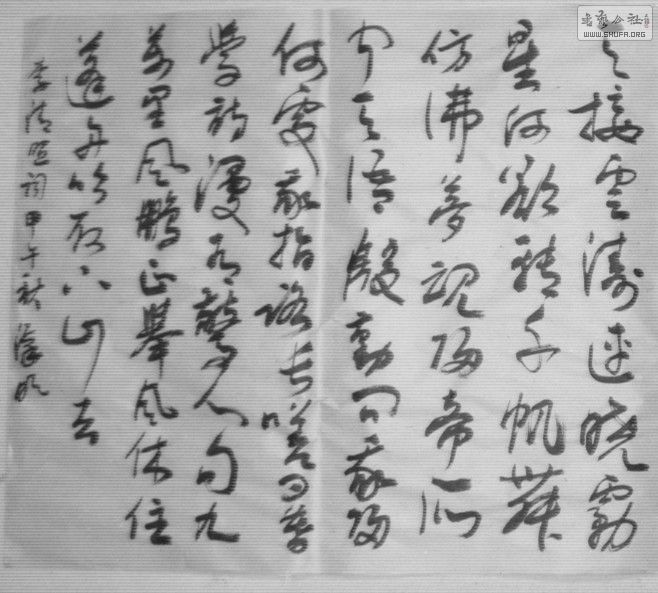 天接雲濤連曉霧
星河欲轉千帆舞
仿佛夢魂歸帝所
聞天語殷勤問我歸
何處我報路長嗟日暮
學詩漫有驚人句九
萬里風鵬正舉風休住
蓬舟吹取三山去
李清照詞甲午秋
書藝公社
WWW.SHUFA.ORG